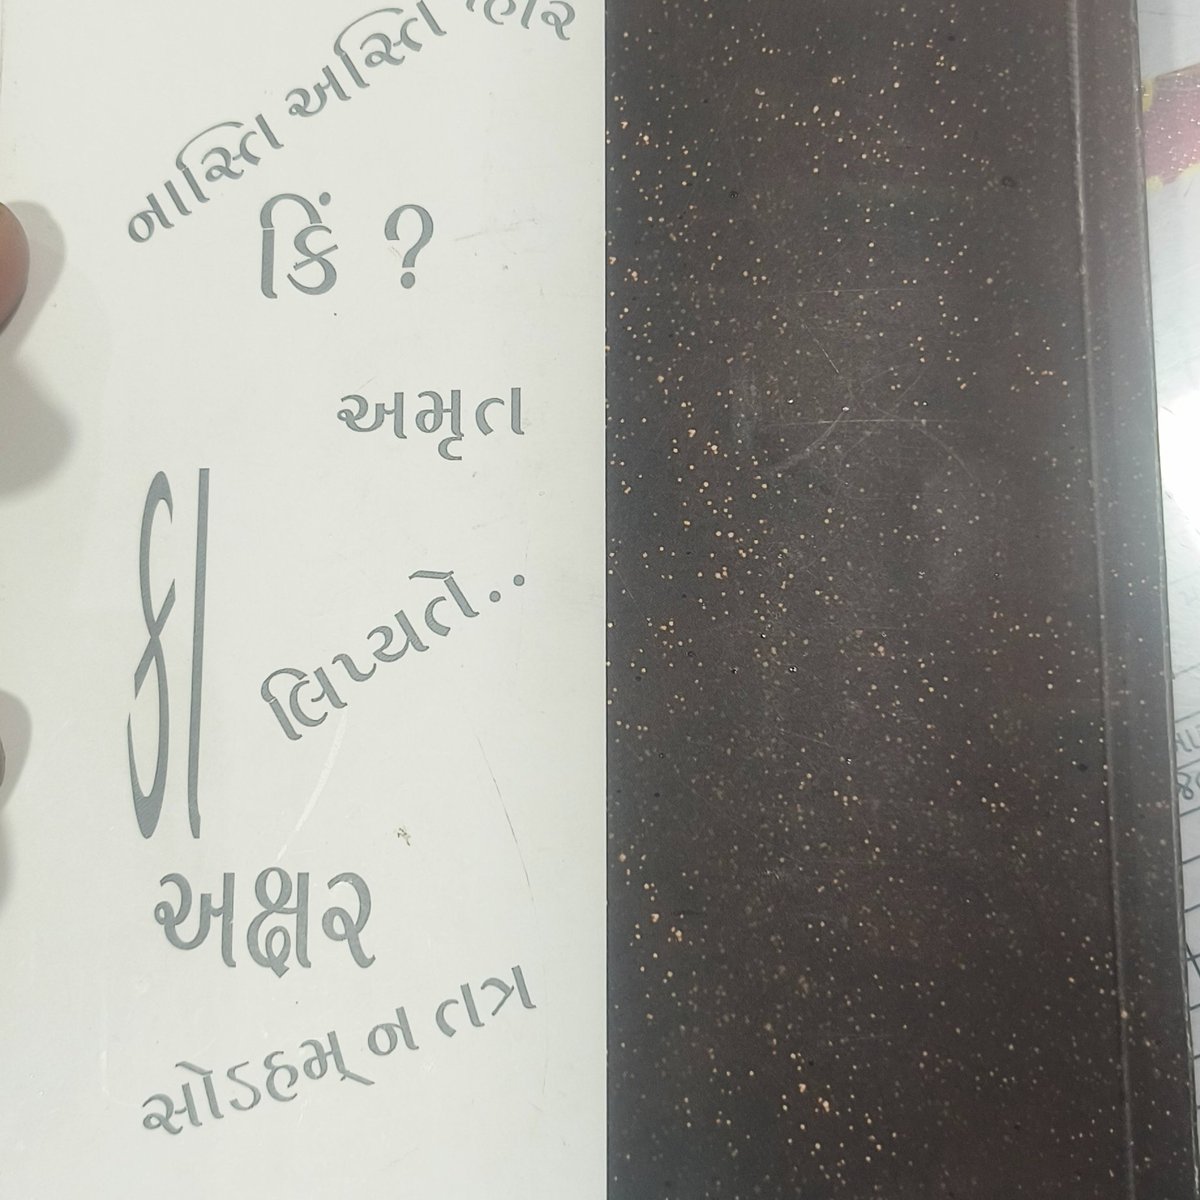 નાસ્તિ અસ્તિ
કિં ?
અમૃત
લિપ્યતે..
અક્ષર
સોઽહમ્ ન તત્ર